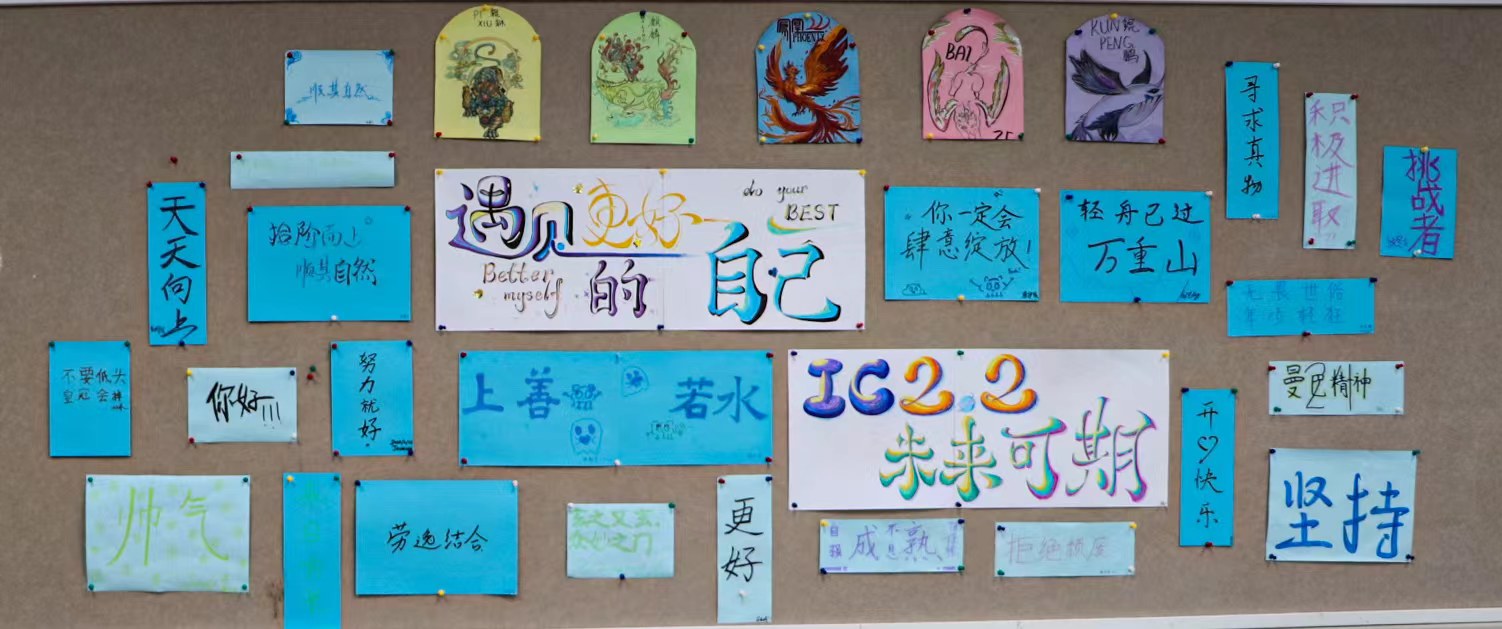 PI 貔
XIU 貅
麒麟
鳳凰
BAI
KUN 鲲
PENG 鹏
顺其自然
寻求真物
积极进取
挑战者
天天向上
拾阶而上
顺其自然
遇见更好的自己
do your
BEST
Better
myself
你一定会
肆意绽放!
轻舟已过
万重山
不要低头
皇冠会掉
你好!!!
努力就好。
上善若水
IG2.2
未来可期
开♡快乐
曼巴精神
坚持
帅气
劳逸结合
玄之又玄,
众妙之门
更好
自强不息
成熟
拒绝摆烂